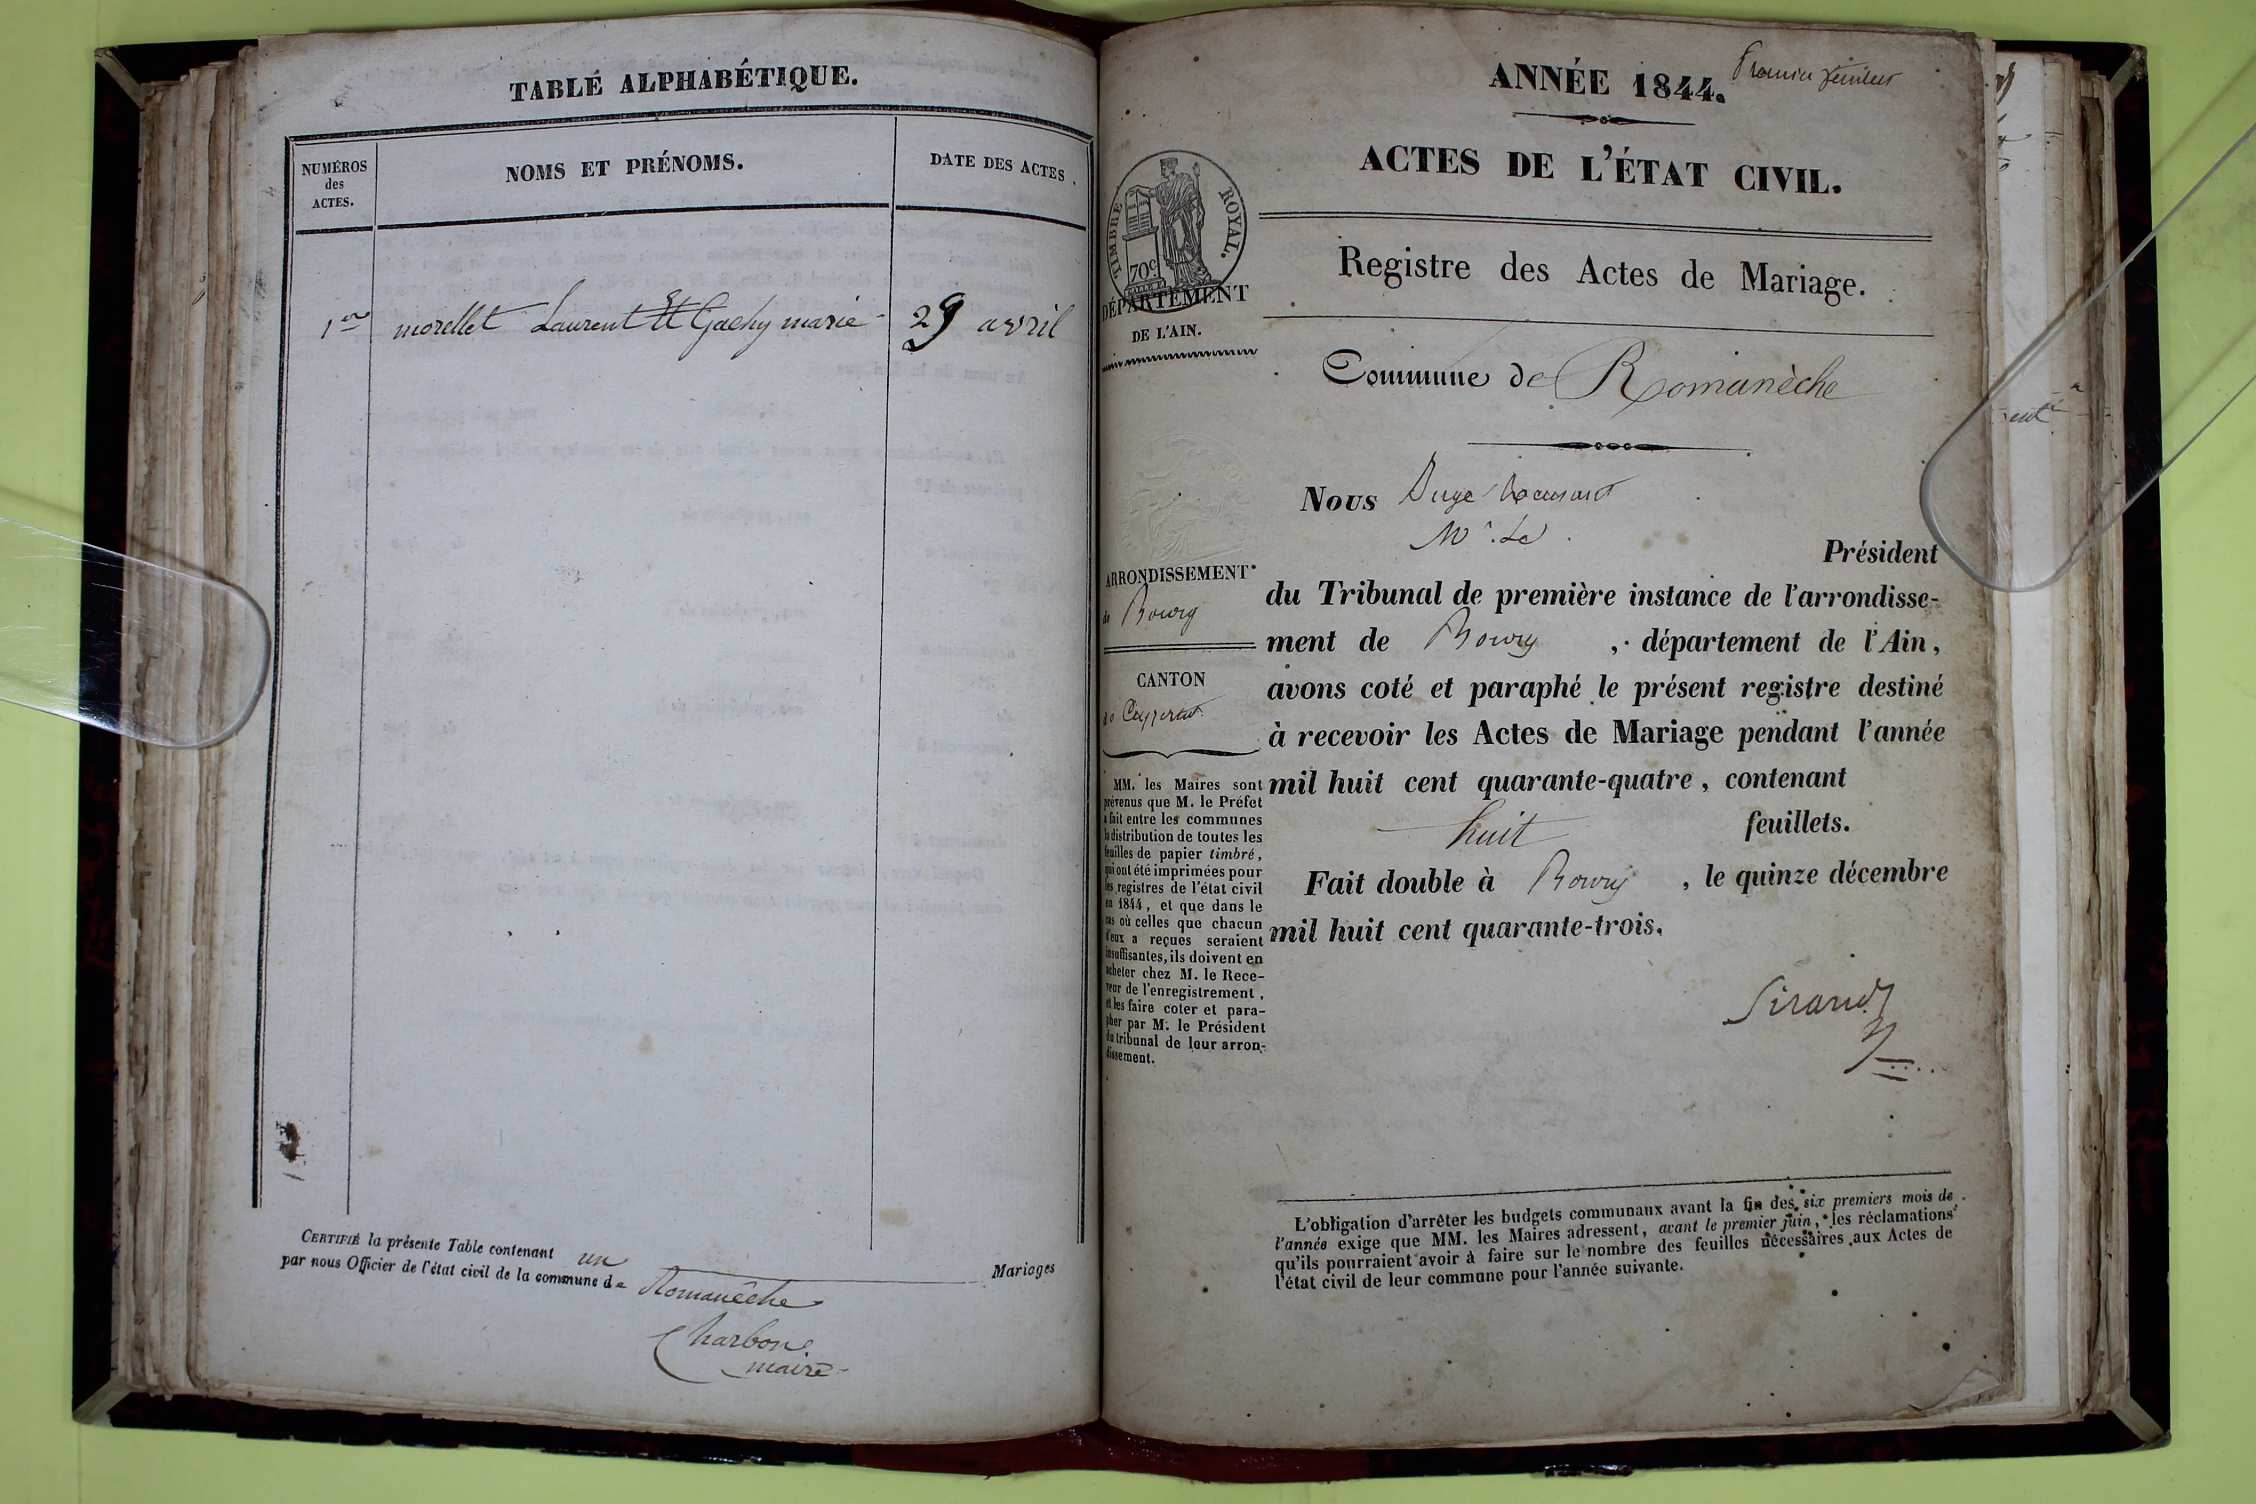 TABLE ALPHABÉTIQUE.
NUMÉROS
des
ACTES.
NOMS ET PRÉNOMS.
DATE DES ACTES.
1er morellet Laurent Et Gachy marie 29 avril
CERTIFIÉ la présente Table contenant un Mariages
par nous Officier de l'état civil de la commune de Romanèche
Charbon
maire
ANNÉE 1844.
Premier feuillet
ACTES DE L'ÉTAT CIVIL.
TIMBRE ROYAL.
70c
DÉPARTEMENT
DE L'AIN.
Registre des Actes de Mariage.
Commune de Romanèche
ARRONDISSEMENT
de Bourg
CANTON
de Ceyzeriat
MM. les Maires sont
prévenus que M. le Préfet
a fait entre les communes
la distribution de toutes les
feuilles de papier timbré,
qui ont été imprimées pour
les registres de l'état civil
en 1844, et que dans le
cas où celles que chacun
d'eux a reçues seraient
insuffisantes, ils doivent en
acheter chez M. le Rece-
veur de l'enregistrement,
et les faire coter et para-
pher par M. le Président
du tribunal de leur arron-
dissement.
Nous Juge
Mr. Le
Président
du Tribunal de première instance de l'arrondisse-
ment de Bourg, département de l'Ain,
avons coté et paraphé le présent registre destiné
à recevoir les Actes de Mariage pendant l'année
mil huit cent quarante-quatre, contenant
huit feuillets.
Fait double à Bourg, le quinze décembre
mil huit cent quarante-trois.
Sirand
L'obligation d'arrêter les budgets communaux avant la fin des six premiers mois de
l'année exige que MM. les Maires adressent, avant le premier juin, les réclamations
qu'ils pourraient avoir à faire sur le nombre des feuilles nécessaires aux Actes de
l'état civil de leur commune pour l'année suivante.